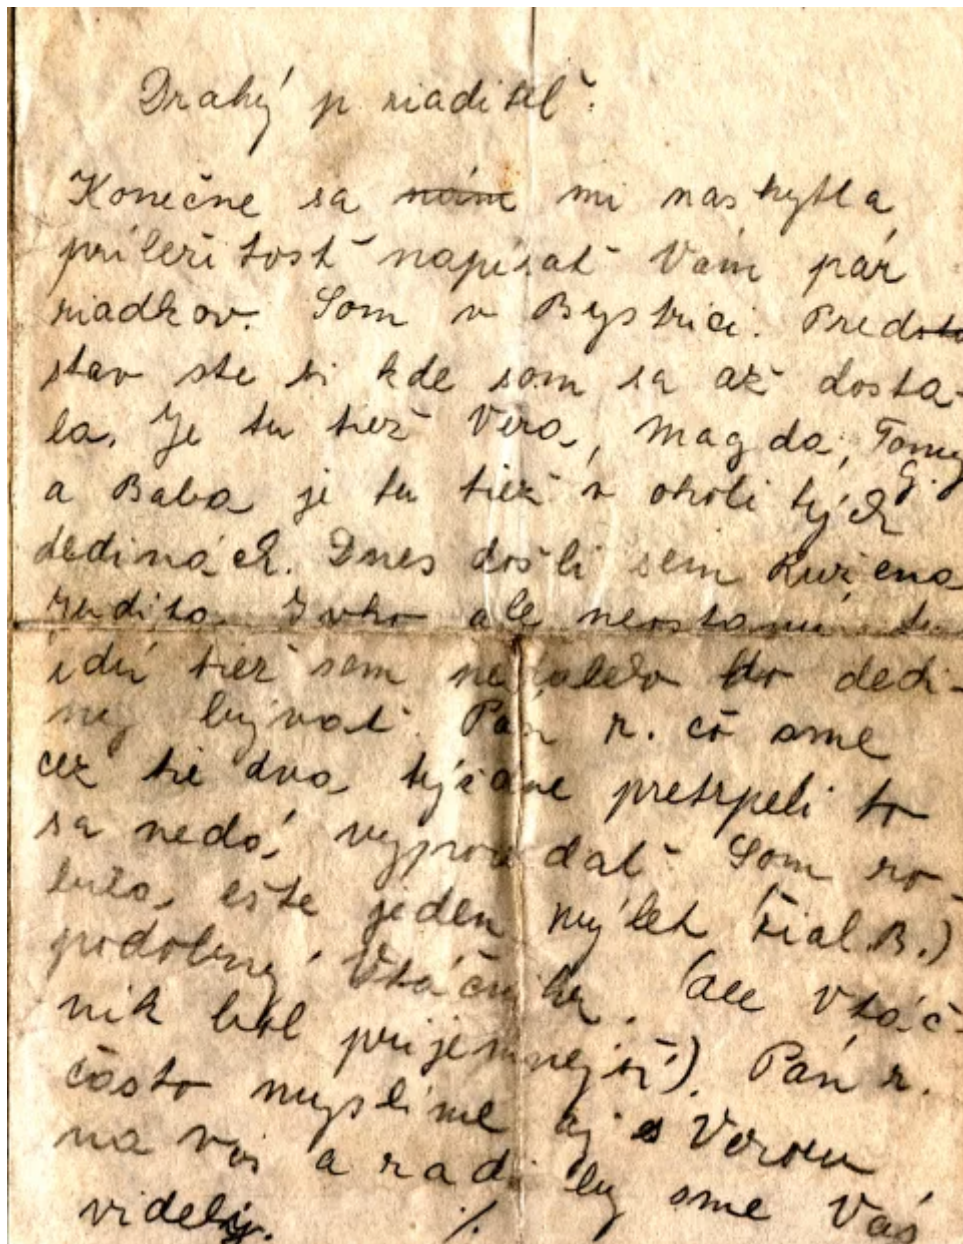 Drahý p riaditeľ.
Konečne sa nám mi naskytla
príležitosť napísať Vám pár
riadkov. Som v Bystrici. Predsta
stav ste si kde som sa až dosta-
la. Je tu tiež Vera, Magda, Tomy
G.
a Baba je tu tiež v okolí tých
dedinách. Dnes došli sem Ružena
Judita Ivko ale neostanú tu
idú tiež sem neďaleko do dedi-
ny bývať. Pán r. čo sme
cez tie dva týždne pretrpeli to
sa nedá vyprovedať. Som ro-
bila, ešte jeden výlet (Žial. B.)
podobný Vtáčnika. (ale Vtáč-
nik bol príjemnejší). Pán r.
často myslíme aj s Verou
na vás a radi by sme Vás
videly. ./.